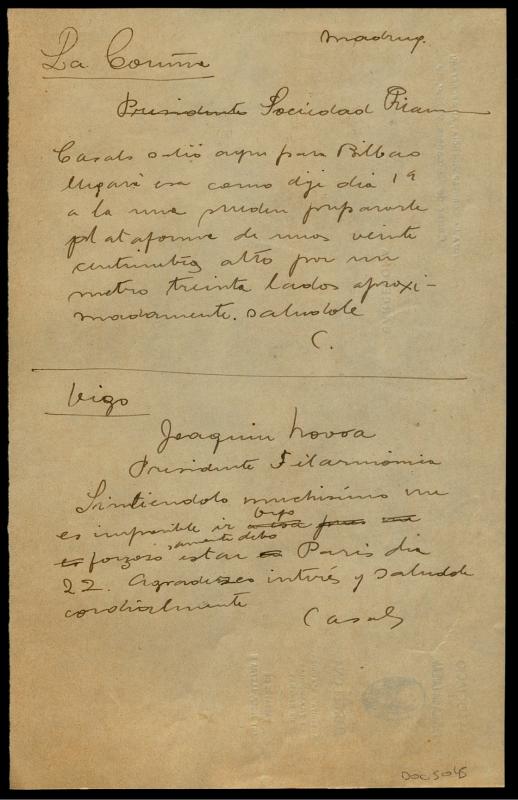 madrug.
La Coruña
Presidente Sociedad
Casals salió ayer para Bilbao
llegará esa como dije día 1º
a la una pueden prepararle
plataforma de unos veinte
centimetros alto por un
metro treinta lados aproxi-
madamente. saludole
C.
Vigo
Joaquin Novoa
Presidente Filarmónica
Sintiendolo muchísimo me
es imposible ir Vigo
forzosamente debo estar Paris dia
22. Agradezco interés y saludole
cordialmente
Casals
DOC5045